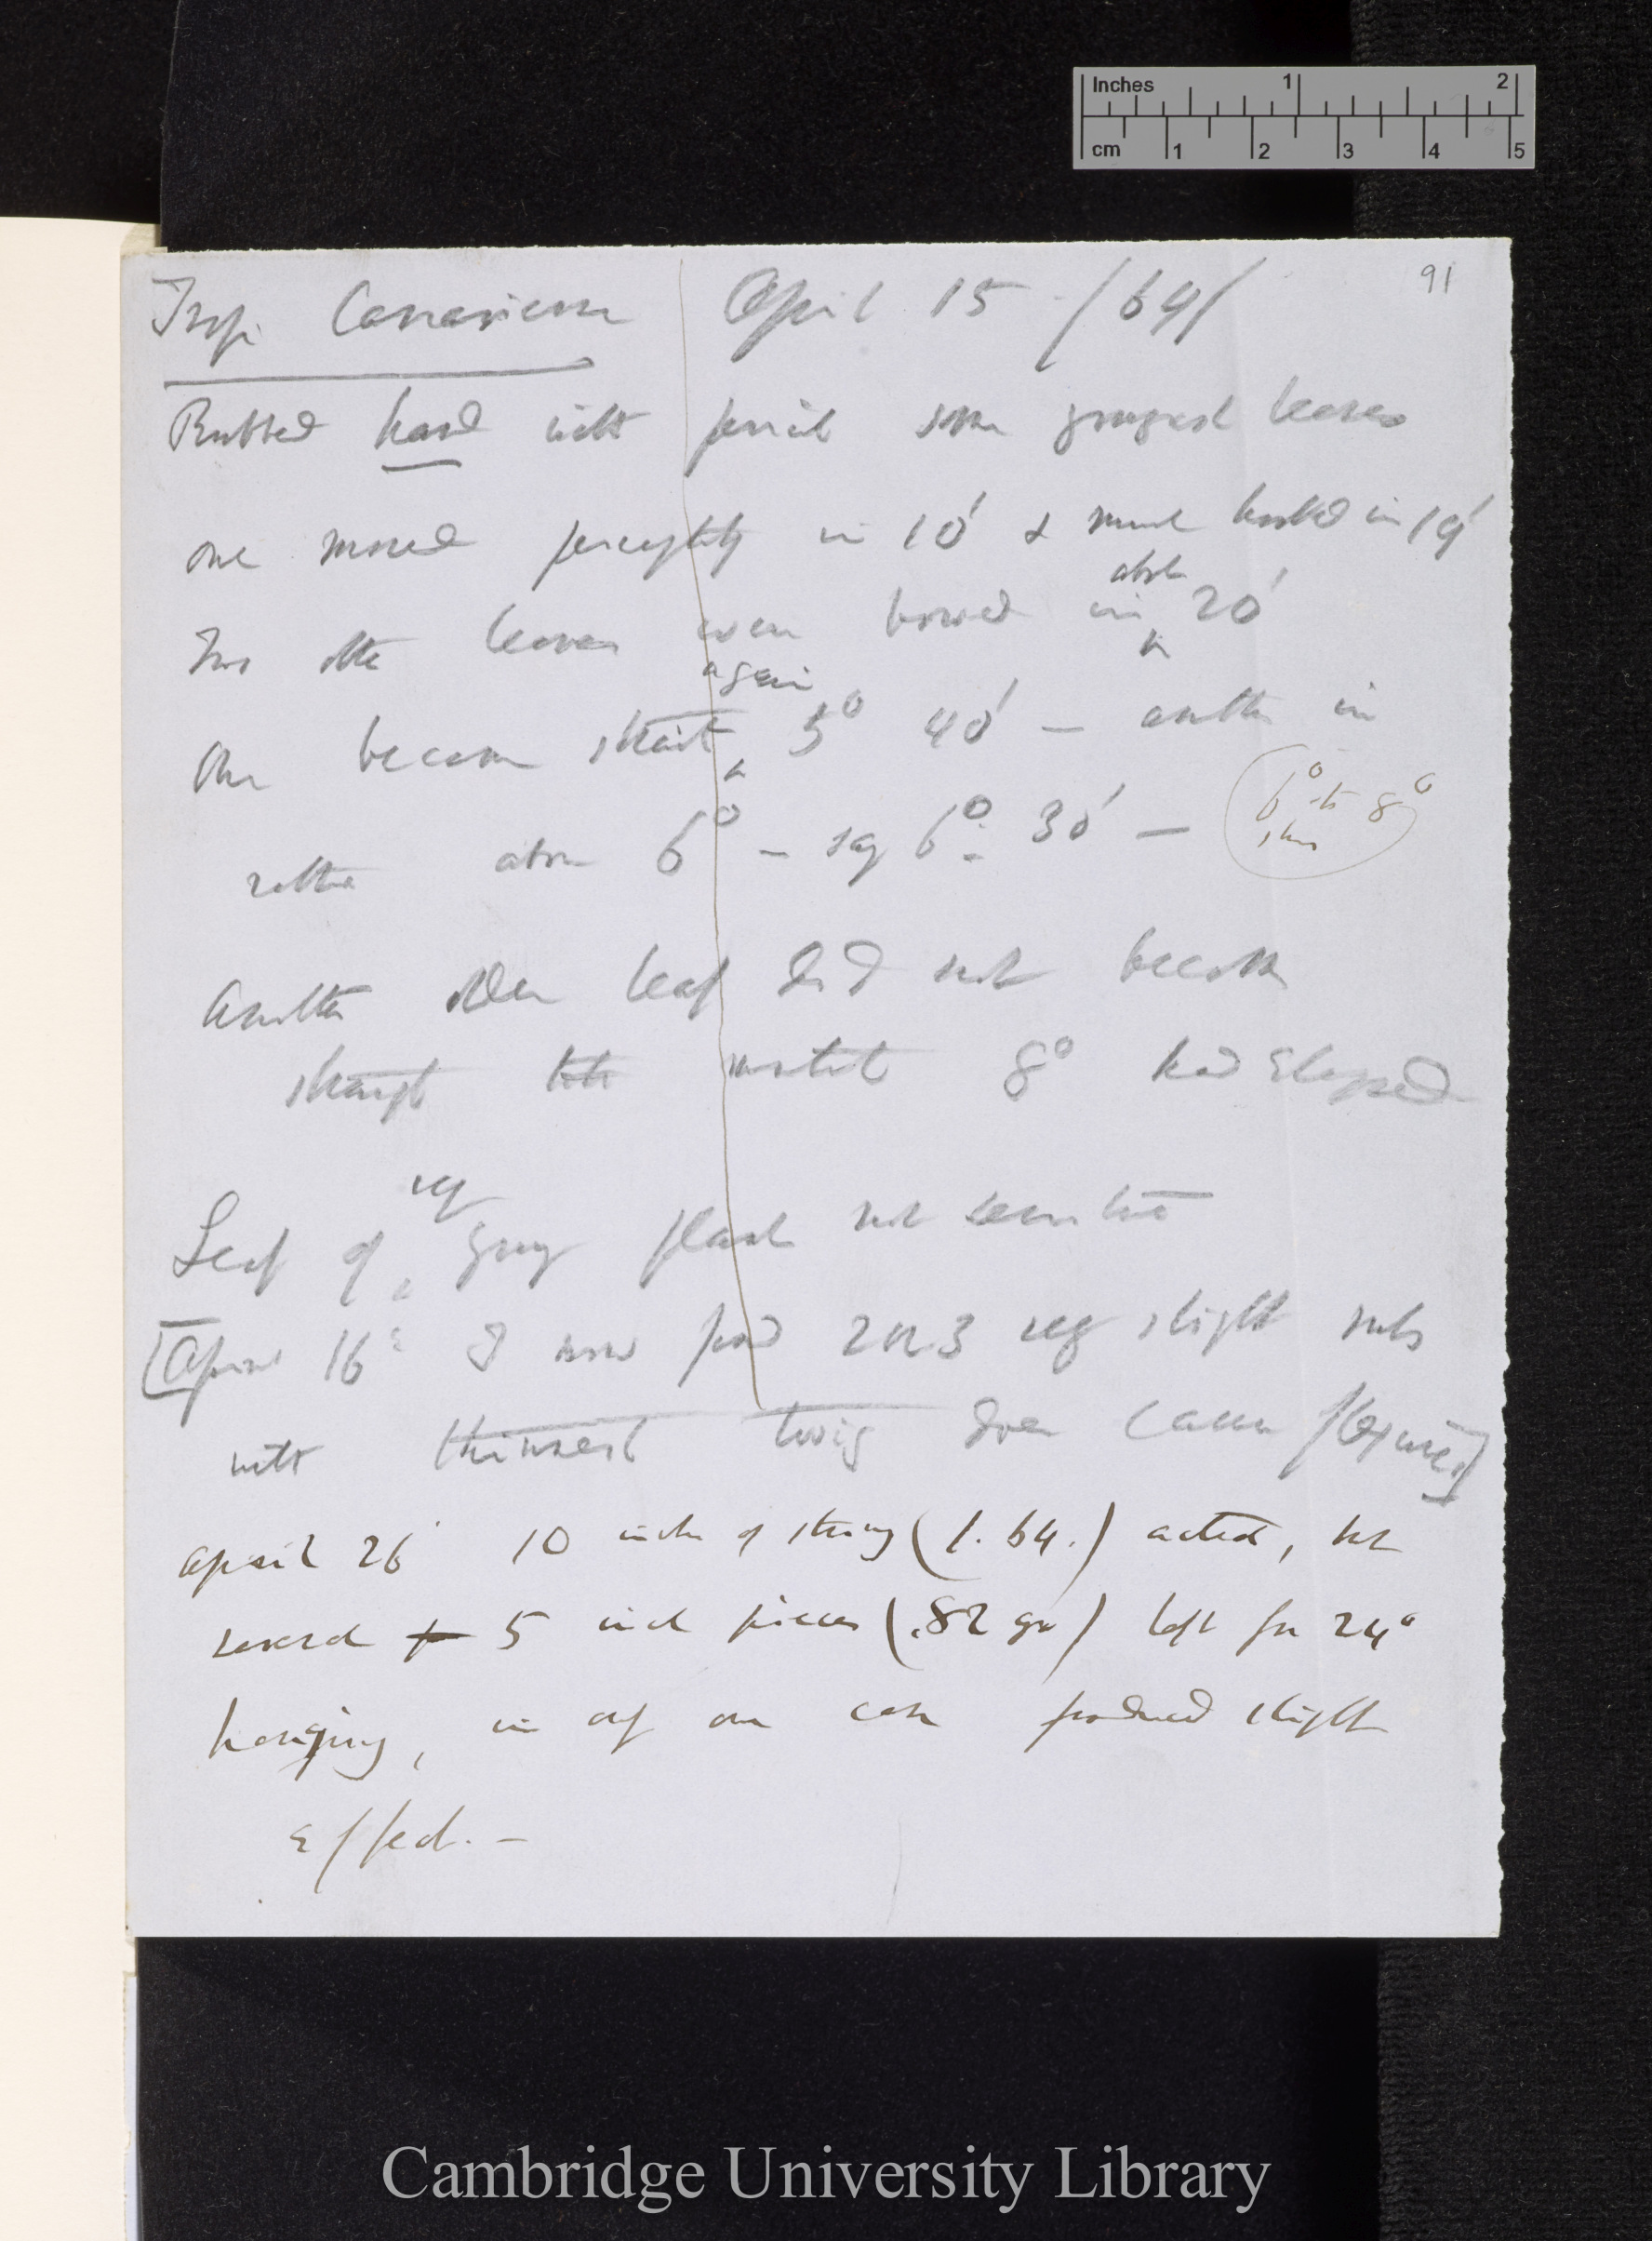 Inches 1 2
cm 1 2 3 4 5
91
Trop. Canariense April 15 /64/
Rubbed hard with pencil some youngest leaves
one moved perceptibly in 10' & much hooked in 19'
about
Two other leaves were bowed in ^ 20'
again
One became strait ^ 5° 40' — another in
rather above 6° — say 6° 30' — 6° to 8°
Another older leaf did not become
straight until 8° had elapsed
very
Leaf of ^ young plant not sensitive
[April 16 I now find 2 or 3 very slight rubs
with thinnest twig does cause flexure]
April 26 10 inches of string (1.64.) acted, but
several 5 inch pieces (.82 gr) left for 24°
hanging, in only one case produced slight
effect. —
Cambridge University Library